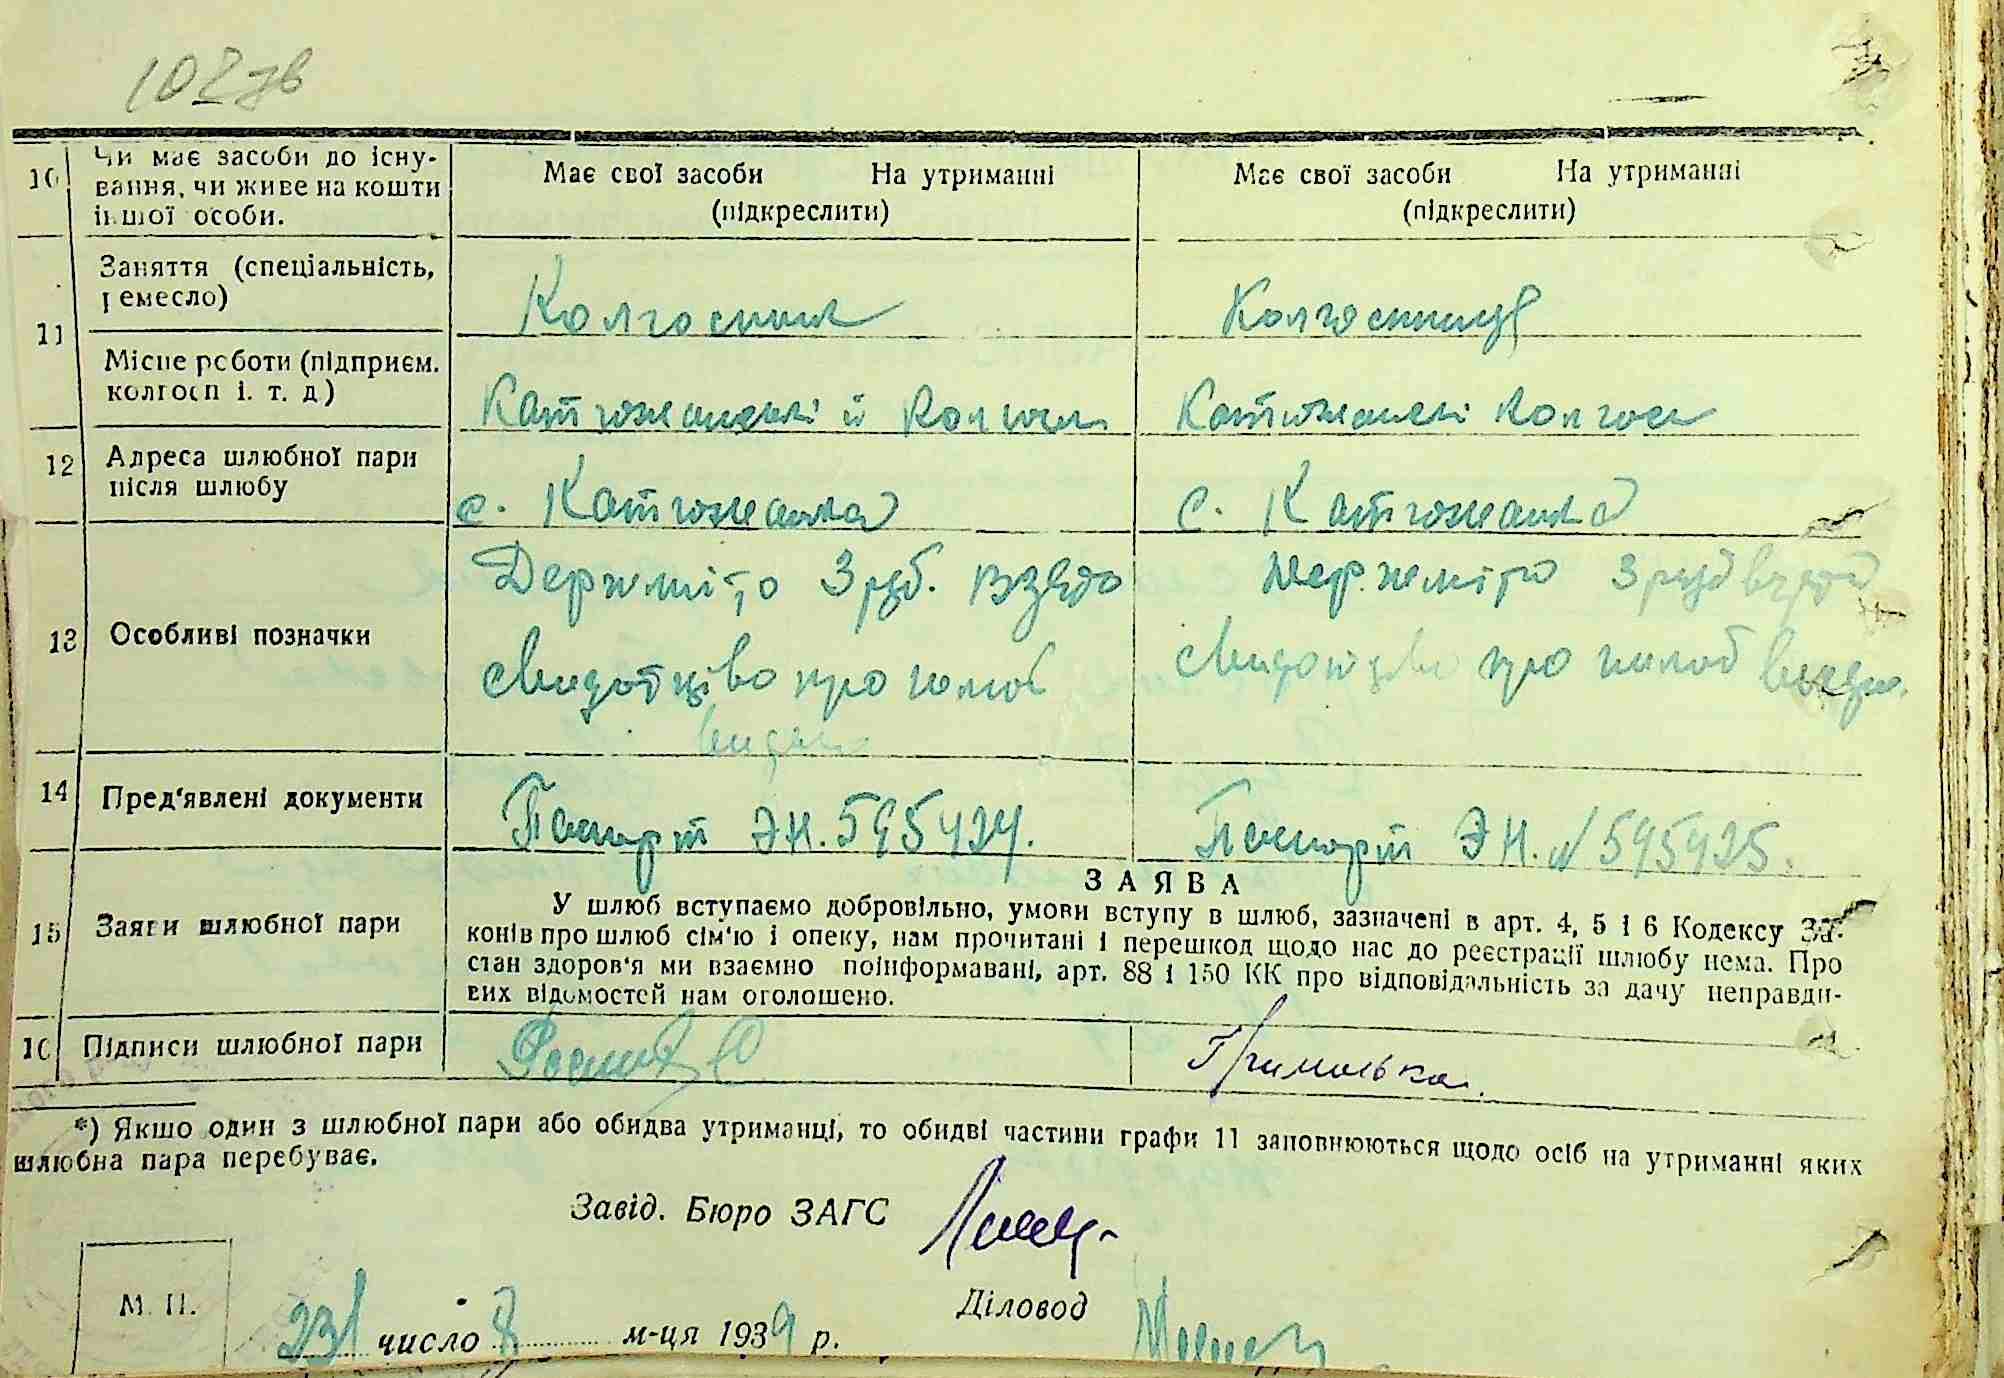 102 зв
10 Чи має засоби до існу-
вання, чи живе на кошти
іншої особи.
Має свої засоби На утриманні
(підкреслити)
Має свої засоби На утриманні
(підкреслити)
11 Заняття (спеціальність,
ремесло)
Колгоспник
Колгоспниця
Місце роботи (підприєм.
колгосп і. т. д)
Катюжанський колгосп
Катюжанські колгосп
12 Адреса шлюбної пари
після шлюбу
с. Катюжанка
с. Катюжанка
13 Особливі позначки
Держмито 3 руб. взято
свидотцтво про шлюб
видано
Держмито 3 руб взято
свидотцтво про шлюб видано.
14 Пред'явлені документи
Паспорт ЭН. 595424.
Паспорт ЭН. № 595425.
15 Заяви шлюбної пари
ЗАЯВА
У шлюб вступаємо добровільно, умови вступу в шлюб, зазначені в арт. 4, 5 і 6 Кодексу За-
конів про шлюб сім'ю і опеку, нам прочитані і перешкод щодо нас до реєстрації шлюбу нема. Про
стан здоров'я ми взаємно поінформавані, арт. 88 і 150 КК про відповідальність за дачу неправди-
вих відомостей нам оголошено.
16 Підписи шлюбної пари
*) Якщо один з шлюбної пари або обидва утриманці, то обидві частини графи 11 заповнюються щодо осіб на утриманні яких
шлюбна пара перебуває.
Завід. Бюро ЗАГС
М. П.
23 число 8 м-ця 1939 р.
Діловод